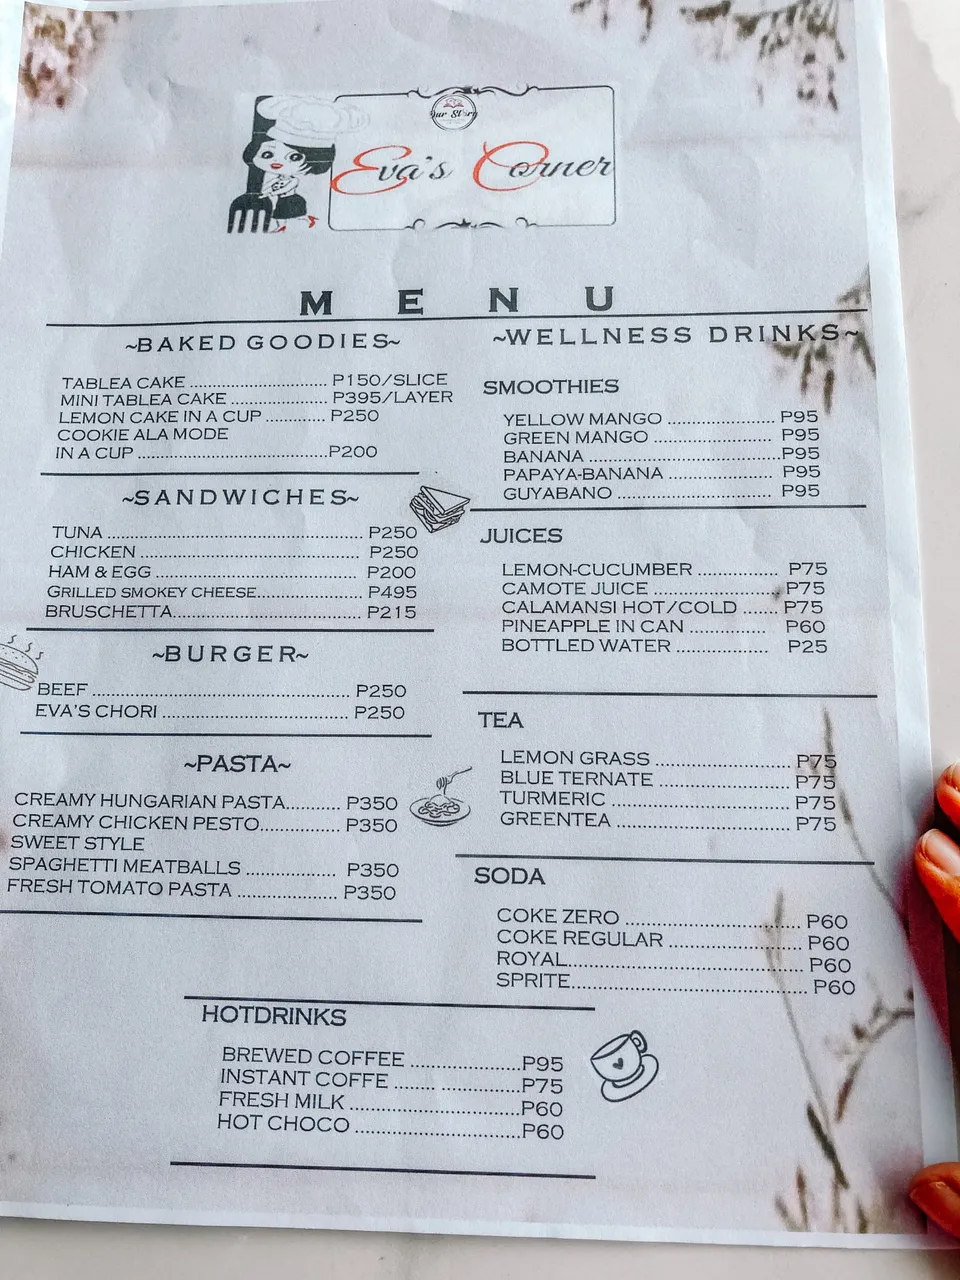 Our Story
Eva's Corner
MENU
~BAKED GOODIES~
TABLEA CAKE ............................ P150/SLICE
MINI TABLEA CAKE .................... P395/LAYER
LEMON CAKE IN A CUP ............ P250
COOKIE ALA MODE
IN A CUP .......................................P200
~SANDWICHES~
TUNA .................................................... P250
CHICKEN .............................................. P250
HAM & EGG .......................................... P200
GRILLED SMOKEY CHEESE..................... P495
BRUSCHETTA...................................... P215
~BURGER~
BEEF ..................................................... P250
EVA'S CHORI ...................................... P250
~PASTA~
CREAMY HUNGARIAN PASTA........... P350
CREAMY CHICKEN PESTO................ P350
SWEET STYLE
SPAGHETTI MEATBALLS .................. P350
FRESH TOMATO PASTA .................... P350
~WELLNESS DRINKS~
SMOOTHIES
YELLOW MANGO ...................... P95
GREEN MANGO ........................ P95
BANANA .....................................P95
PAPAYA-BANANA ...................... P95
GUYABANO ............................... P95
JUICES
LEMON-CUCUMBER ................ P75
CAMOTE JUICE ........................P75
CALAMANSI HOT/COLD ....... P75
PINEAPPLE IN CAN ................ P60
BOTTLED WATER ................... P25
TEA
LEMON GRASS ............................ P75
BLUE TERNATE ............................ P75
TURMERIC .................................... P75
GREENTEA ................................... P75
SODA
COKE ZERO .................................... P60
COKE REGULAR ............................ P60
ROYAL................................................ P60
SPRITE................................................ P60
HOTDRINKS
BREWED COFFEE .......................P95
INSTANT COFFE ..........................P75
FRESH MILK ...................................P60
HOT CHOCO ..................................P60